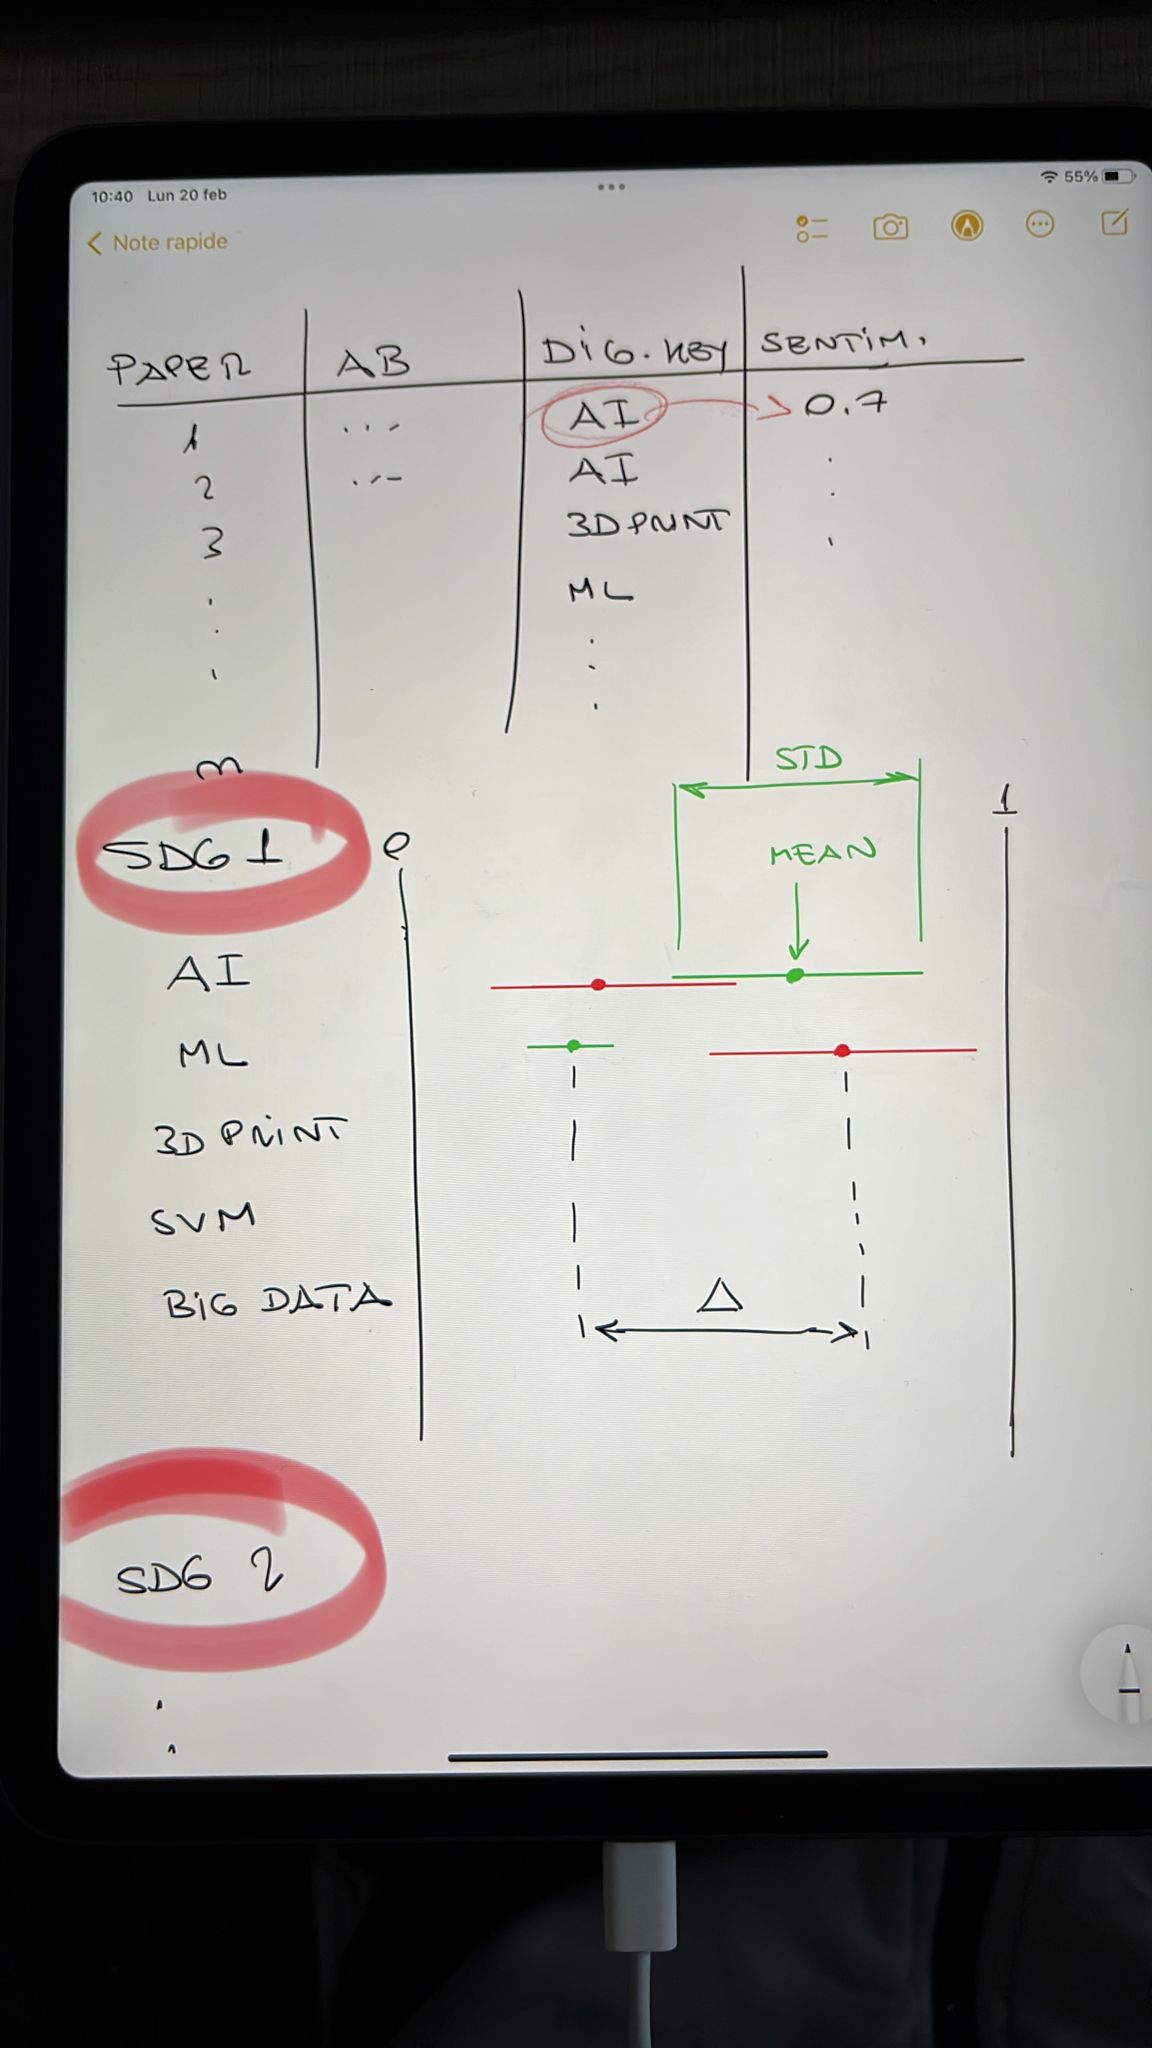 10:40 Lun 20 feb
55%
Note rapide
PAPER AB DIG. KEY SENTIM.
1 ... AI 0.7
2 ... AI
3 3D PRINT
ML
m
STD
SDG 1 0 1
MEAN
AI
ML
3D PRINT
SVM
BIG DATA
Δ
SDG 2